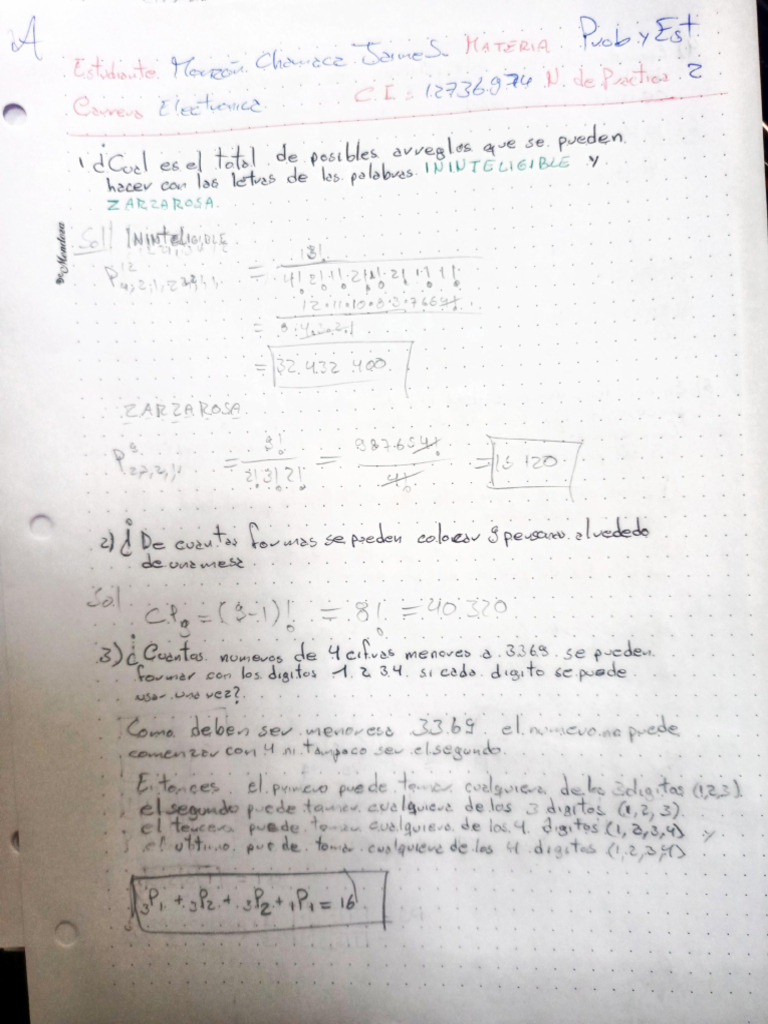 A
Estudiante Jaime S. MATERIA Prob y Est
Carrera Electronica C.I: 12736974 N. de Practica 2
1 ¿Cual es el total de posibles arreglos que se pueden
hacer con las letras de las palabras ININTELIGIBLE y
ZARZAROSA.
Sol ININTELIGIBLE
= 32.432.400
ZARZAROSA
= 9! / 2! 3! 2! = 987654! / 4! = 15120
2) ¿De cuantas formas se pueden colocar 9 personas alrededo
de una mesa
Sol
CP9 = (9-1)! = 8! = 40.320
3) ¿Cuantos numeros de 4 cifras menores a 3369 se pueden
formar con los digitos 1 2 3 4 si cada digito se puede
usar una vez?
Como deben ser menores a 33.69 el numero no puede
comenzar con 4 ni tampoco ser el segundo.
Entonces el primero puede tomar cualquiera de los 3 digitos (1,2,3)
el segundo puede tomar cualquiera de los 3 digitos (1,2,3)
el tercero puede tomar cualquiera de los 4 digitos (1,2,3,4) y
el ultimo puede tomar cualquiera de los 4 digitos (1,2,3,4)
3P1 + 3P2 + 3P2 + 1P1 = 16